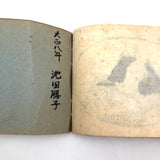 大正八年
池田勝子